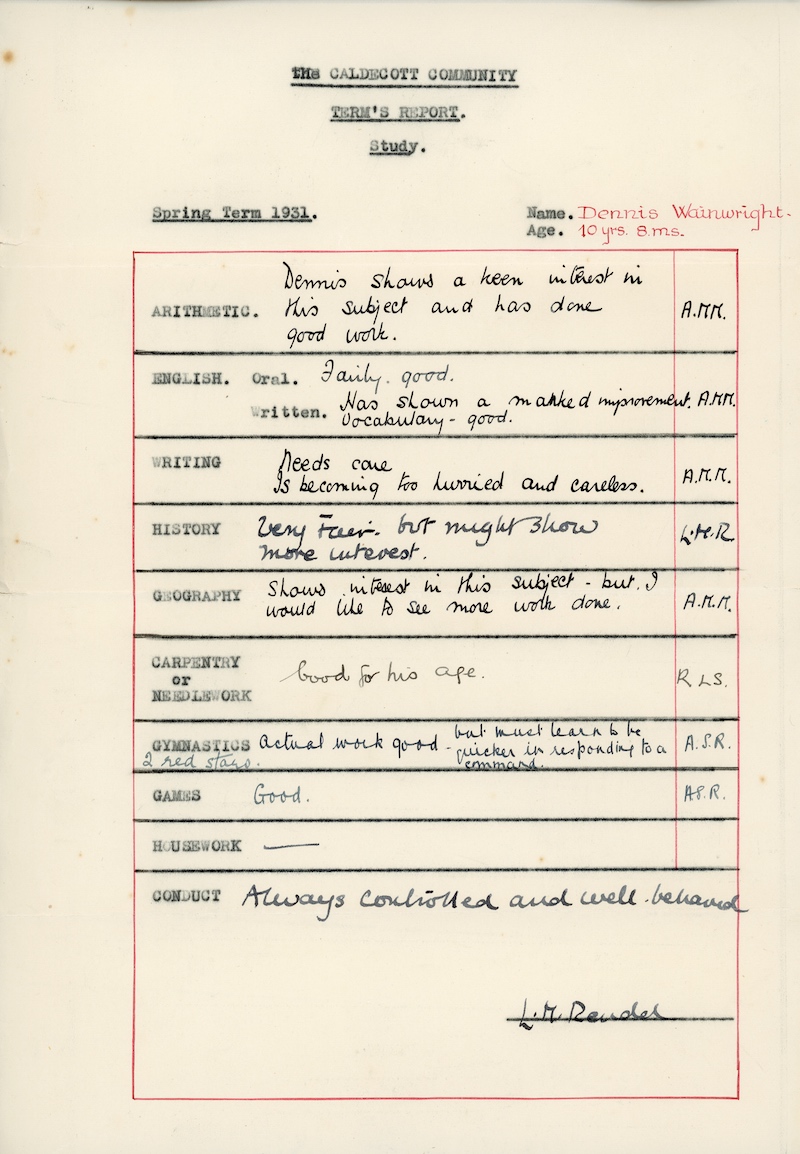 THE CALDECOTT COMMUNITY
TERM'S REPORT.
Study.
Spring Term 1931.
Name. Dennis Wainwright.
Age. 10 yrs. 8.ms.
ARITHMETIC. Dennis shows a keen interest in
this subject and has done
good work.
A.M.M.
ENGLISH. Oral. Fairly. good.
Written. Has shown a marked improvement. A.M.M.
Vocabulary - good.
WRITING Needs care
Is becoming too hurried and careless.
A.M.M.
HISTORY Very Fair. but might show
more interest.
L.M.R
GEOGRAPHY Shows interest in this subject - but. I
would like to see more work done.
A.M.M.
CARPENTRY
or
NEEDLEWORK
Good for his age.
R L S.
GYMNASTICS Actual work good - but must learn to be
quicker in responding to a
command.
2 red stars.
A.S.R.
GAMES Good. A.S.R.
HOUSEWORK —
CONDUCT Always controlled and well-behaved
L.M. Rendel